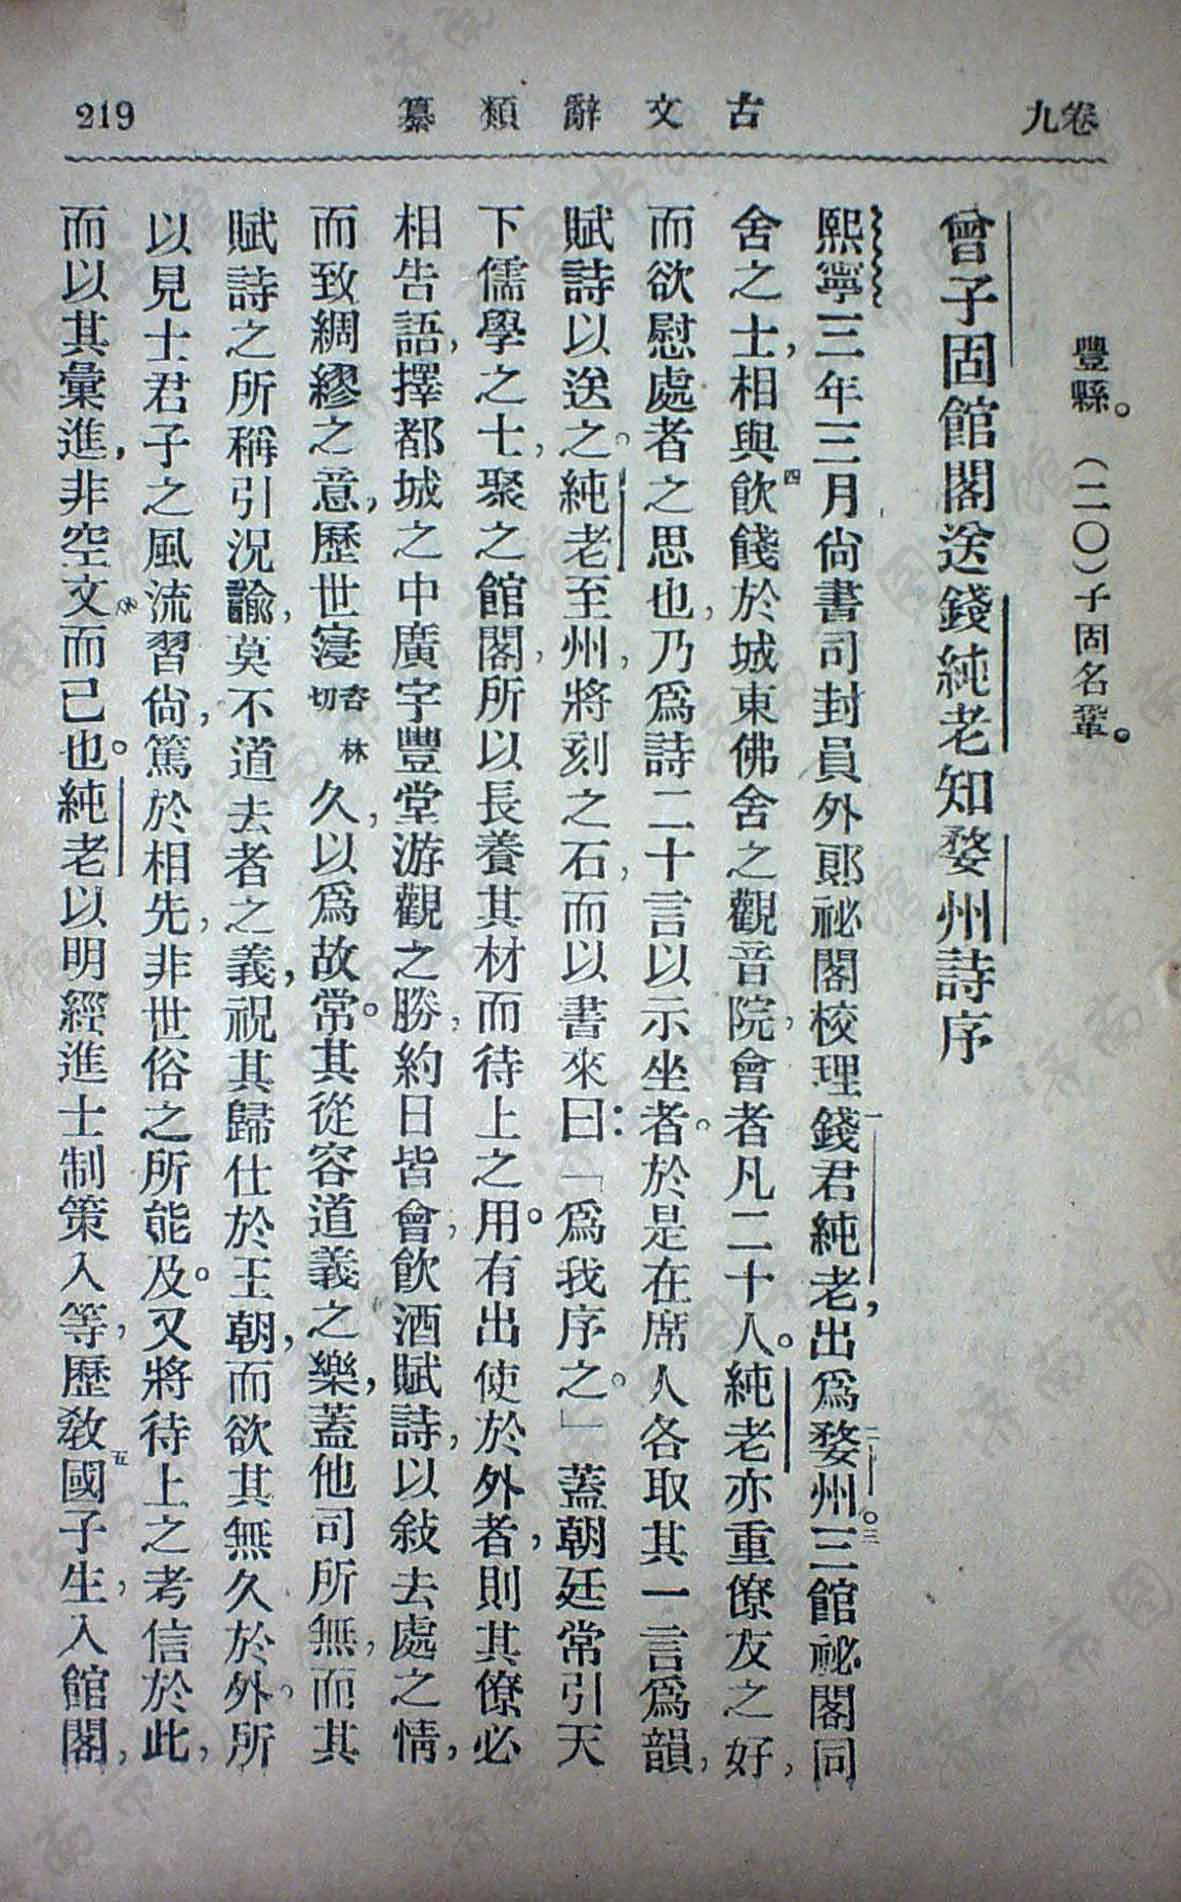 卷九
古文辭類纂
219
豐縣。(二〇)子固名鞏。
曾子固館閣送錢純老知婺州詩序
熙寧三年三月尙書司封員外郞祕閣校理一錢君純老,出爲二婺州。三三館祕閣同
舍之士,相與四飮餞於城東佛舍之觀音院,會者凡二十人。純老亦重僚友之好,
而欲慰處者之思也,乃爲詩二十言以示坐者。於是在席人各取其一言爲韻,
賦詩以送之。純老至州,將刻之石,而以書來曰:「爲我序之。」蓋朝廷常引天
下儒學之士,聚之館閣,所以長養其材而待上之用。有出使於外者,則其僚必
相告語,擇都城之中廣宇豐堂游觀之勝,約日皆會,飮酒賦詩,以敍去處之情,
而致綢繆之意,歷世寖咨林切久,以爲故常。其從容道義之樂,蓋他司所無,而其
賦詩之所稱引況諭,莫不道去者之義,祝其歸仕於王朝,而欲其無久於外。所
以見士君子之風流習尙,篤於相先,非世俗之所能及。又將待上之考信於此,
而以其彙進,非空文而已也。純老以明經進士制策入等,歷敎五國子生,入館閣,